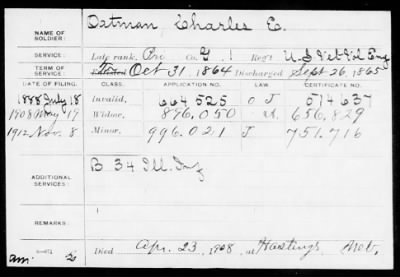 NAME OF SOLDIER: Oatman, Charles E.
SERVICE: Late rank, Pri Co. G, 1 Reg't U.S. Vet Vol Eng
TERM OF SERVICE: Enlisted Oct 31, 1864 Discharged Sept 26, 1865
DATE OF FILING. CLASS. APPLICATION NO. LAW. CERTIFICATE NO.
1888 July 18 Invalid, 664525 J 514637
1908 May 19 Widow, 896,050 656,829
1912 Nov. 8 Minor, 996.021 J 751,716
ADDITIONAL SERVICES: B 34 Ill. Inf
REMARKS:
Died Apr. 23, 1908 at Hastings Neb.